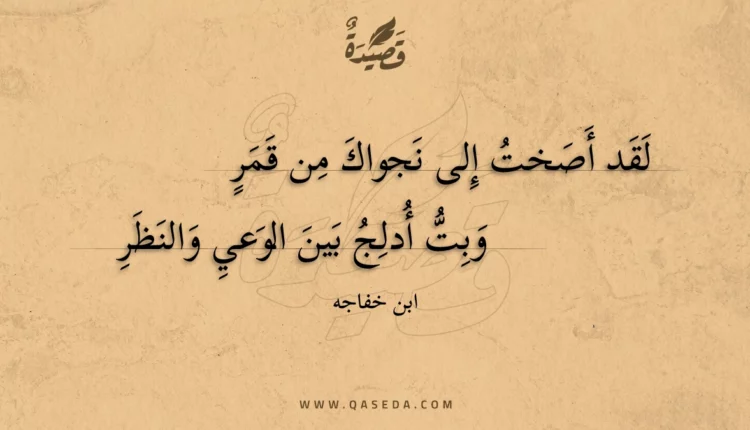 قَصِيدَةٌ
لَقَد أَصَختُ إِلى نَجواكَ مِن قَمَرٍ
وَبِتُّ أُدلِجُ بَينَ الوَعيِ وَالنَظَرِ
ابن خفاجه
WWW.QASEDA.COM